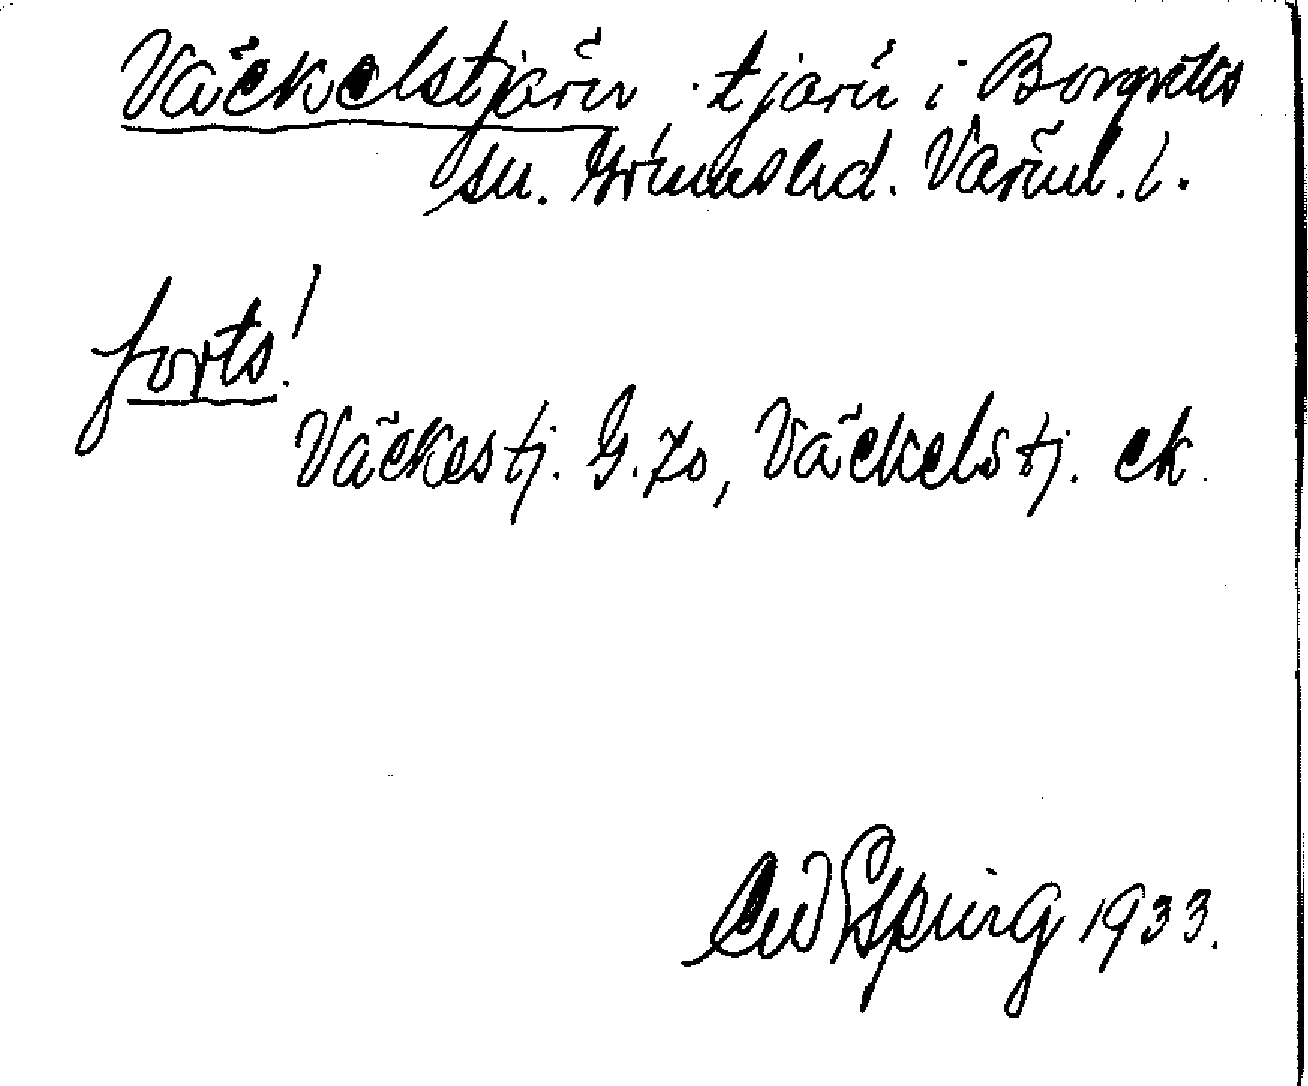 Väckelstjärn, tjärn i Borgviks
sn. Grums hd. Värml. l.
forts!
Väckestj. G. Ks, Väckelstj. ek.
1933.